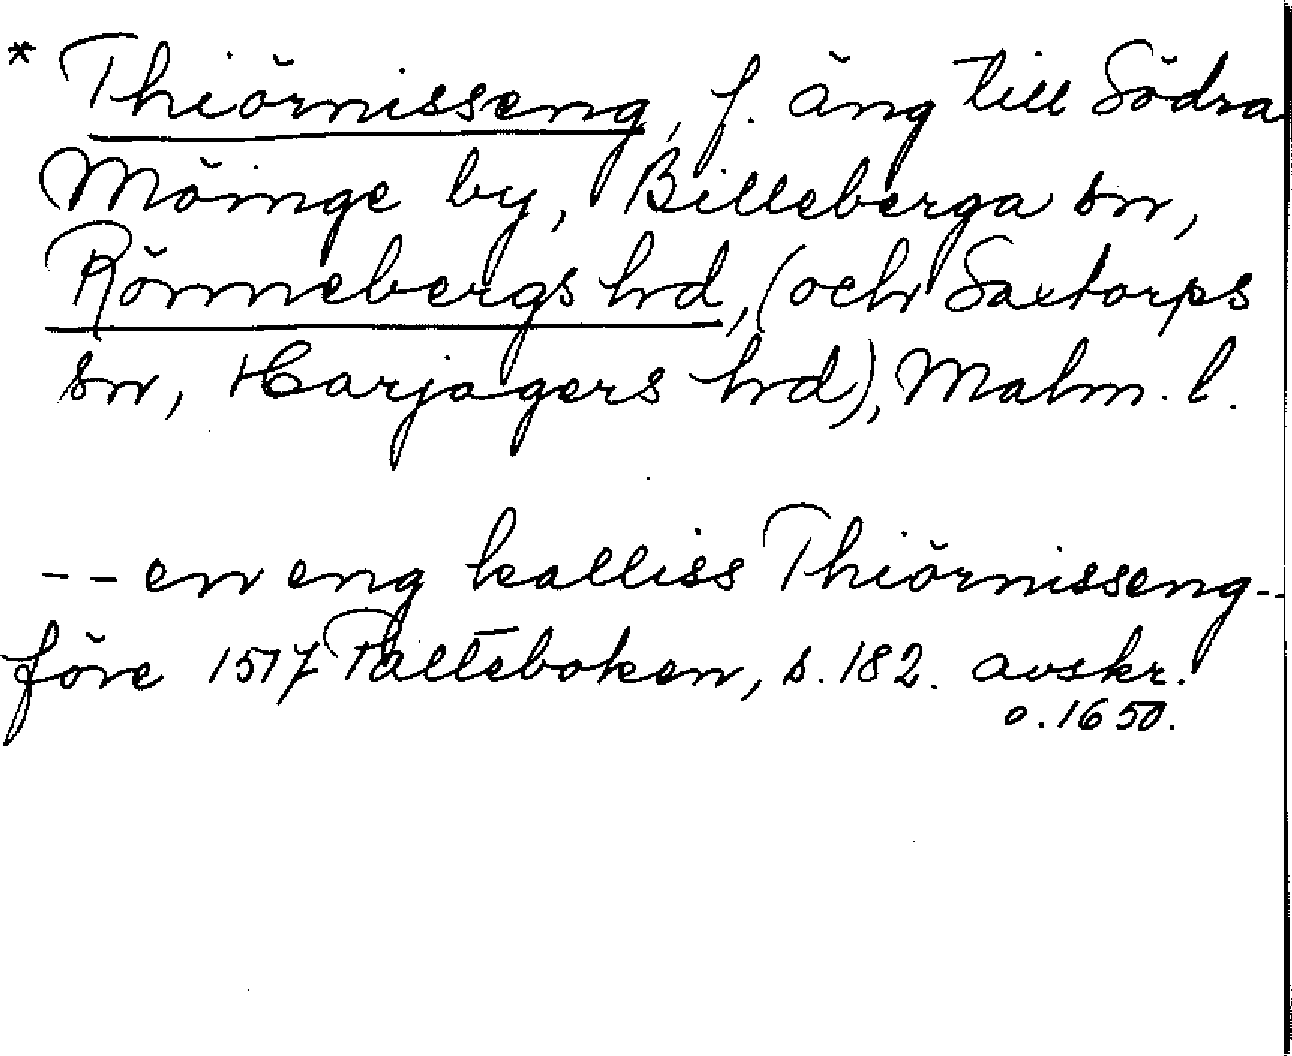 * Thiörnisseng, f. äng till Södra
Möinge by, Billeberga sn,
Rönnebergs hrd, (och Saxtorps
sn, Harjagers hrd), Malm. l.
-- en eng kalliss Thiörnisseng --
före 1517 Palteboken, s. 182. avskr.
o. 1650.